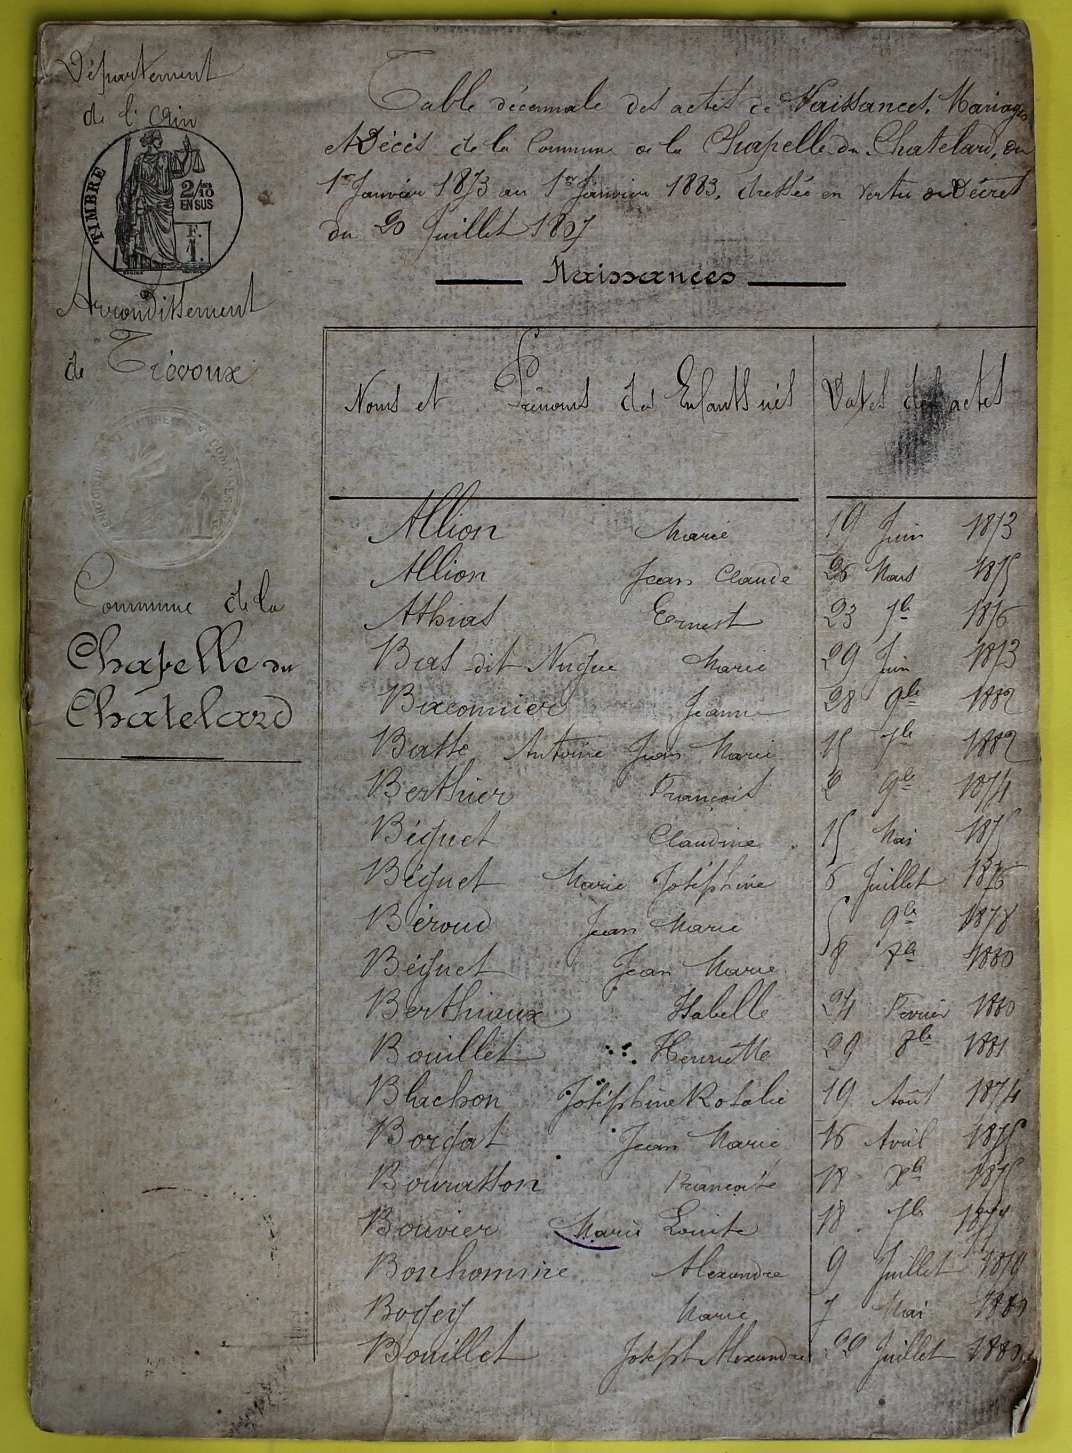 Département
de l'Ain
TIMBRE
2/10
EN SUS
F.
1.
Arrondissement
de Trévoux
Commune de la
Chapelle du
Châtelard
Table décennale des actes de Naissances, Mariages
et Décès de la Commune de la Chapelle du Chatelard, du
1er Janvier 1873 au 1er Janvier 1883, dressée en vertu du Décret
du 20 Juillet 1807
Naissances
Noms et Prénoms des Enfants nés Dates des actes
Allion Marie 19 Juin 1873
Allion Jean Claude 26 Mars 1875
Athias Ernest 23 7bre 1876
Bas dit Nugue Marie 29 Juin 1873
Baconnier Jeanne 28 9bre 1882
Batte Antoine Jean Marie 15 7bre 1882
Berthier François 2 9bre 1874
Béguet Claudine 15 Mai 1875
Béguet Marie Joséphine 6 Juillet 1876
Béroud Jean Marie 5 9bre 1878
Béguet Jean Marie 8 1880
Berthieux Isabelle 24 Février 1880
Bouillet Henriette 29 8bre 1881
Blachon Joséphine Rosalie 19 Août 1874
Borgat Jean Marie 16 Avril 1875
Bourasson Françoise 18 1875
Bouvier Marie Louise 18 7bre
Bonhomme Alexandre 9 Juillet
Bogey Marie 7 Mai 1880
Bouillet Joseph Alexandre 22 Juillet 1880